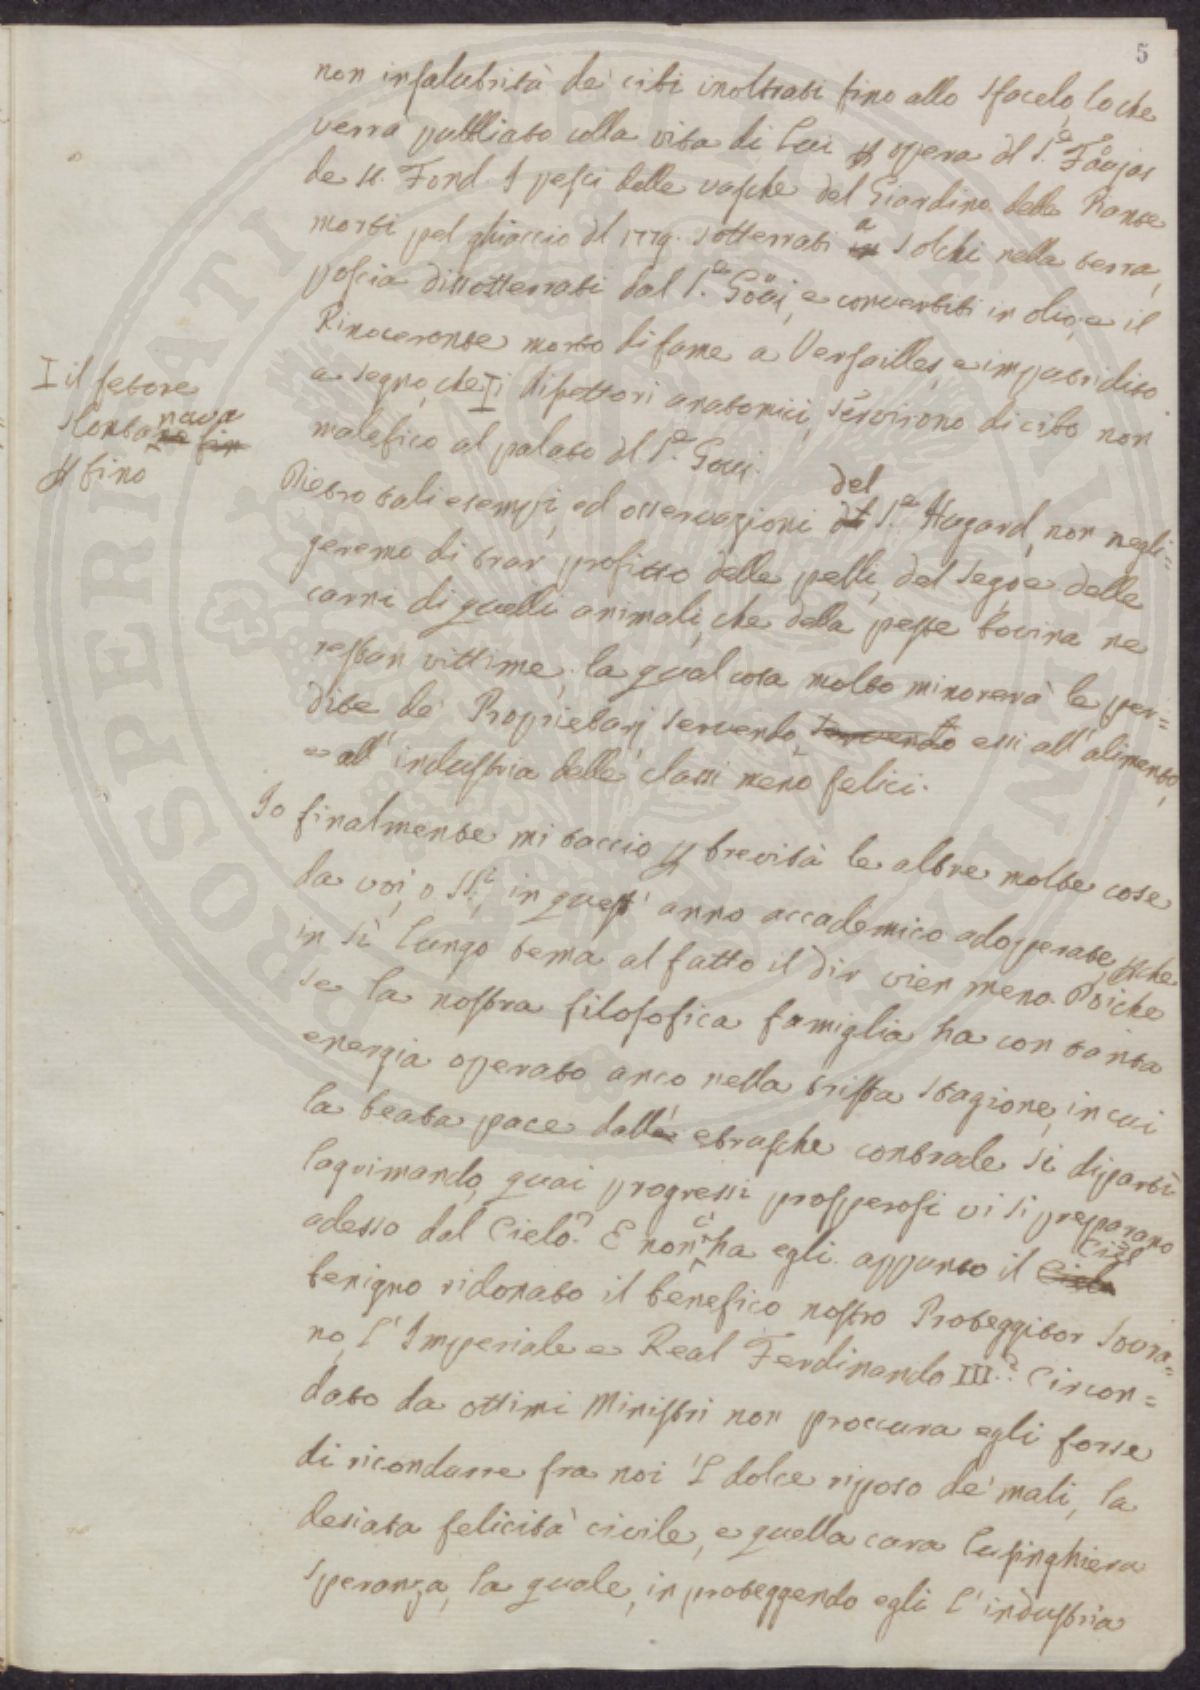 5
non insalubrità de' cibi inoltrati fino allo sfacelo, loche
verrà pubbliato colla vita di Lui p opera dl S.r Faujas
de St. Fond. I pesci delle vasche del Giardino delle Piante
morti pel ghiaccio dl 1779. sotterrati a solchi nella terra,
poscia dissotterrati dal S.r Goüi, e convertiti in olio, e il
Rinoceronte morto di fame a Versailles, e imputridito
a segno, che I i dissettori anatomici, servirono di cibo non
malefico al palato dl S.r Goui.
I il fetore
stontanava
p fino
Dietro tali esempj, ed osservazioni del S.r Huzard, non negli=
geremo di trar profitto delle pelli, del sego, e delle
carni di quelli animali, che della peste bovina ne
restan vittime; la qual cosa molto minorerà le per=
dite de' Proprietarj servendo essi all'alimento,
e all' industria delle classi meno felici.
Io finalmente mi taccio p brevità le altre molte cose
da voi, o SS.i, in quest' anno accademico adoperate, pche
in sì lungo tema al fatto il dir vien meno. Poiche
se la nostra filosofica famiglia ha con tanta
energia operato anco nella trista stagione, in cui
la beata pace dall' etrusche contrade si dipartì
lagrimando, quai progressi prosperosi vi si preparano
adesso dal Cielo? E non ci ha egli appunto il Ciel
benigno ridonato il benefico nostro Proteggitor Sovra=
no, L' Imperiale e Real Ferdinando III.? Circon=
dato da ottimi Ministri non proccura egli forse
di ricondurre fra noi 'l dolce riposo de' mali, la
desiata felicità civile, e quella cara lusinghiera
speranza, la quale, in proteggendo egli l' industria
PROSPERITATI PUBLICAE AUGENDAE